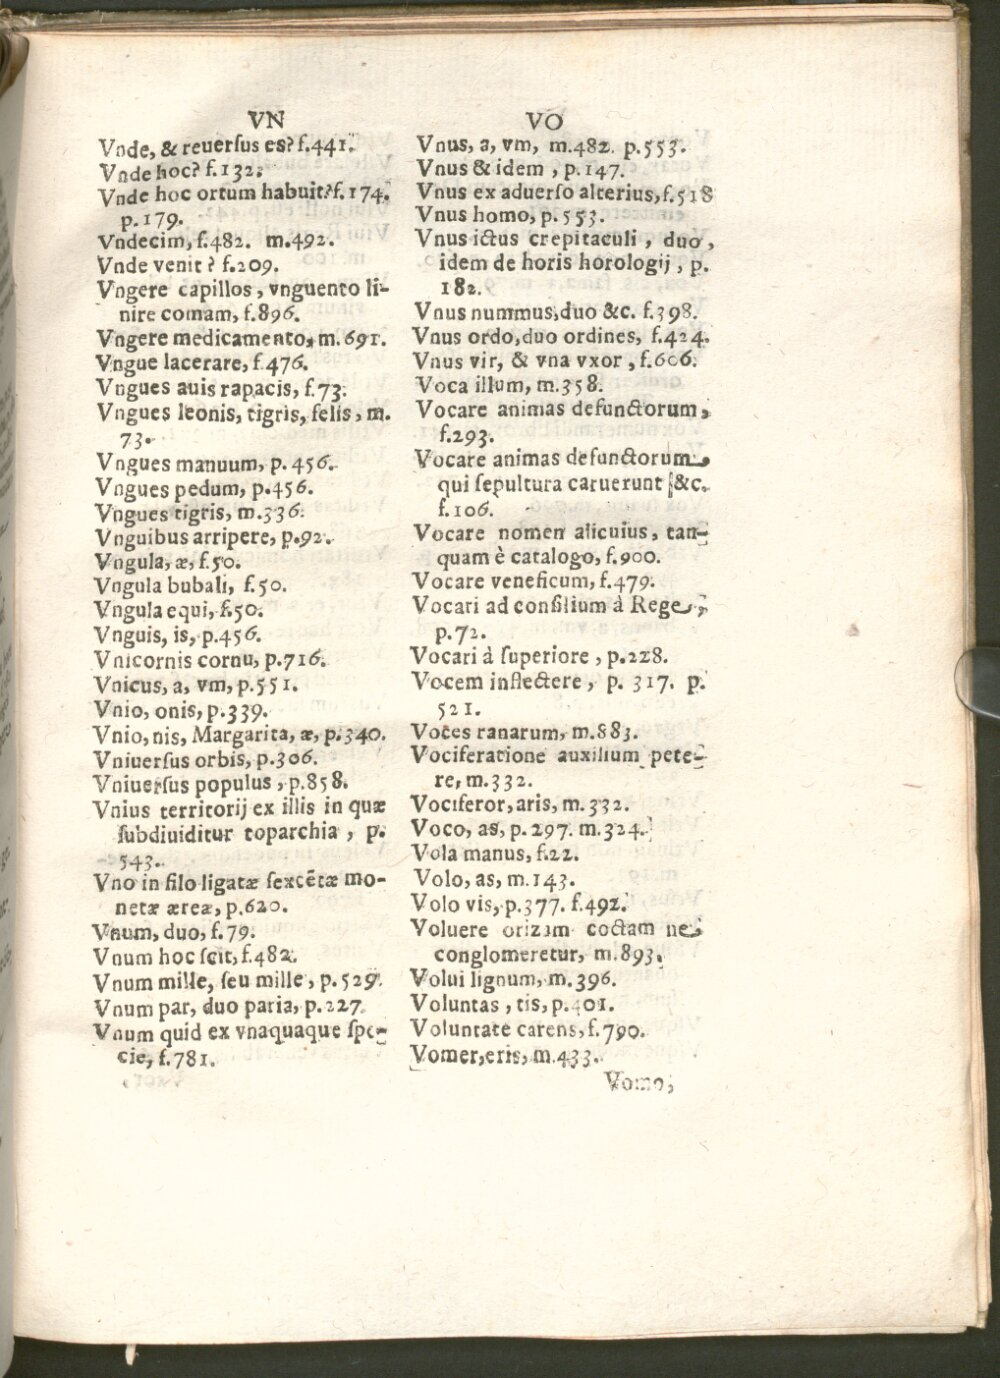 VN
Vnde, & reuerſus es? f.441.
Vnde hoc? f.132.
Vnde hoc ortum habuit? f.174.
p.179.
Vndecim, f.482. m.492.
Vnde venit? f.209.
Vngere capillos, vnguento li-
nire comam, f.896.
Vngere medicamento, m.691.
Vngue lacerare, f.476.
Vngues auis rapacis, f.73.
Vngues leonis, tigris, felis, m.
73.
Vngues manuum, p.456.
Vngues pedum, p.456.
Vngues tigris, m.336.
Vnguibus arripere, p.92.
Vngula, æ, f.50.
Vngula bubali, f.50.
Vngula equi, f.50.
Vnguis, is, p.456.
Vnicornis cornu, p.716.
Vnicus, a, vm, p.551.
Vnio, onis, p.339.
Vnio, nis, Margarita, æ, p.340.
Vniuerſus orbis, p.306.
Vniuerſus populus, p.858.
Vnius territorij ex illis in quæ
ſubdiuiditur toparchia, p.
543.
Vno in filo ligatæ ſexcẽtæ mo-
netæ æreæ, p.620.
Vnum, duo, f.79.
Vnum hoc ſcit, f.482.
Vnum mille, ſeu mille, p.529.
Vnum par, duo paria, p.227.
Vnum quid ex vnaquaque ſpe-
cie, f.781.
VO
Vnus, a, vm, m.482. p.553.
Vnus & idem, p.147.
Vnus ex aduerſo alterius, f.518
Vnus homo, p.553.
Vnus ictus crepitaculi, duo,
idem de horis horologij, p.
182.
Vnus nummus, duo &c. f.398.
Vnus ordo, duo ordines, f.424.
Vnus vir, & vna vxor, f.606.
Voca illum, m.358.
Vocare animas defunctorum,
f.293.
Vocare animas defunctorum,
qui ſepultura caruerunt &c.
f.106.
Vocare nomen alicuius, tan-
quam è catalogo, f.900.
Vocare veneficum, f.479.
Vocari ad conſilium à Rege,
p.72.
Vocari à ſuperiore, p.228.
Vocem inflectere, p. 317. p.
521.
Voces ranarum, m.883.
Vociferatione auxilium pete-
re, m.332.
Vociferor, aris, m.332.
Voco, as, p.297. m.324.
Vola manus, f.22.
Volo, as, m.143.
Volo vis, p.377. f.492.
Voluere orizam coctam ne
conglomeretur, m.893.
Volui lignum, m.396.
Voluntas, tis, p.401.
Voluntate carens, f.790.
Vomer, eris, m.433.
Vomo,